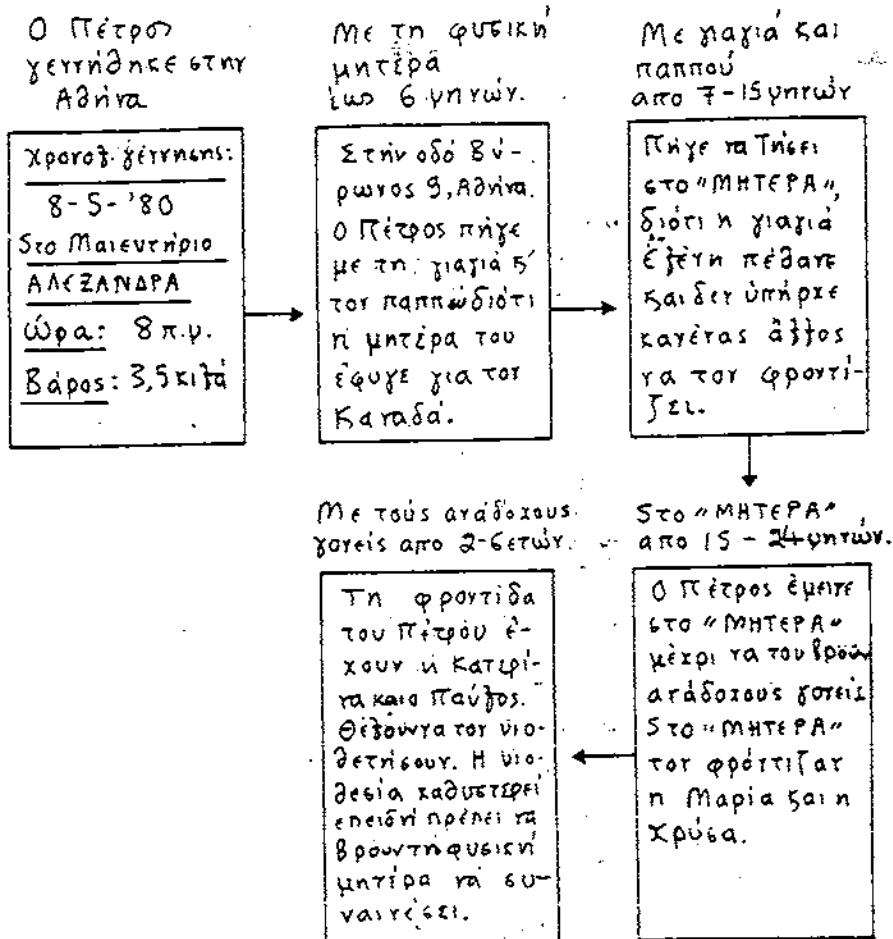 Ο Πέτρος
γεννήθηκε στην
Αθήνα
Χρονολ. γέννησης:
8-5-'80
Στο Μαιευτήριο
ΑΛΕΞΑΝΔΡΑ
Ώρα: 8 π.μ.
Βάρος: 3,5 κιλά
Με τη φυσική
μητέρα
έως 6 μηνών.
Στήν οδό Βύ-
ρωνος 9, Αθήνα.
Ο Πέτρος πήγε
με τη γιαγιά κ'
τον παππού διότι
η μητέρα του
έφυγε για τον
Καναδά.
Με γιαγιά και
παππού
απο 7-15 μηνών
Πήγε να ζήσει
στο "ΜΗΤΕΡΑ",
διότι η γιαγιά
Ελένη πέθανε
και δεν ύπήρχε
κανένας άλλος
να τον φροντί-
ζει.
Στο "ΜΗΤΕΡΑ"
απο 15 - 24 μηνών.
Ο Πέτρος έμεινε
στο "ΜΗΤΕΡΑ"
μέχρι να του βρούν
ανάδοχους γονείς
Στο "ΜΗΤΕΡΑ"
τον φρόντιζαν
η Μαρία και η
Χρύσα.
Με τούς ανάδοχους
γονείς απο 2-6 ετών.
Τη φροντίδα
του Πέτρου έ-
χουν ή Κατερί-
να και ο Παύλος.
Θέλουν να τον υιο-
θετήσουν. Η υιο-
θεσία καθυστερεί
επειδή πρέπει να
βρούν τη φυσική
μητέρα νά συ-
ναινέσει.